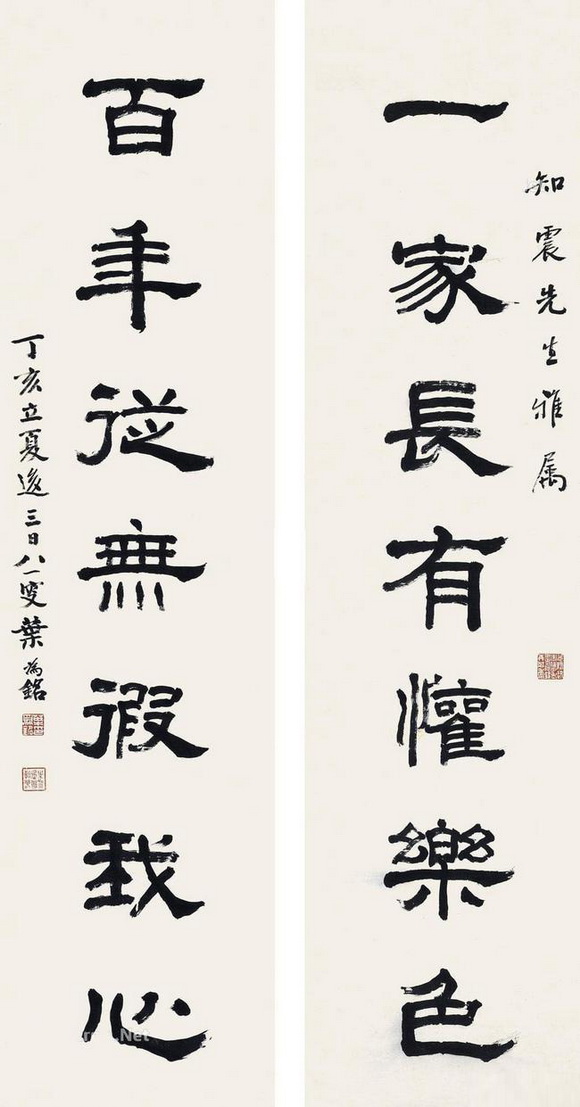 知震先生雅属
一家長有懽樂色
百年從無徦我心
丁亥立夏後三日八一叟葉為銘